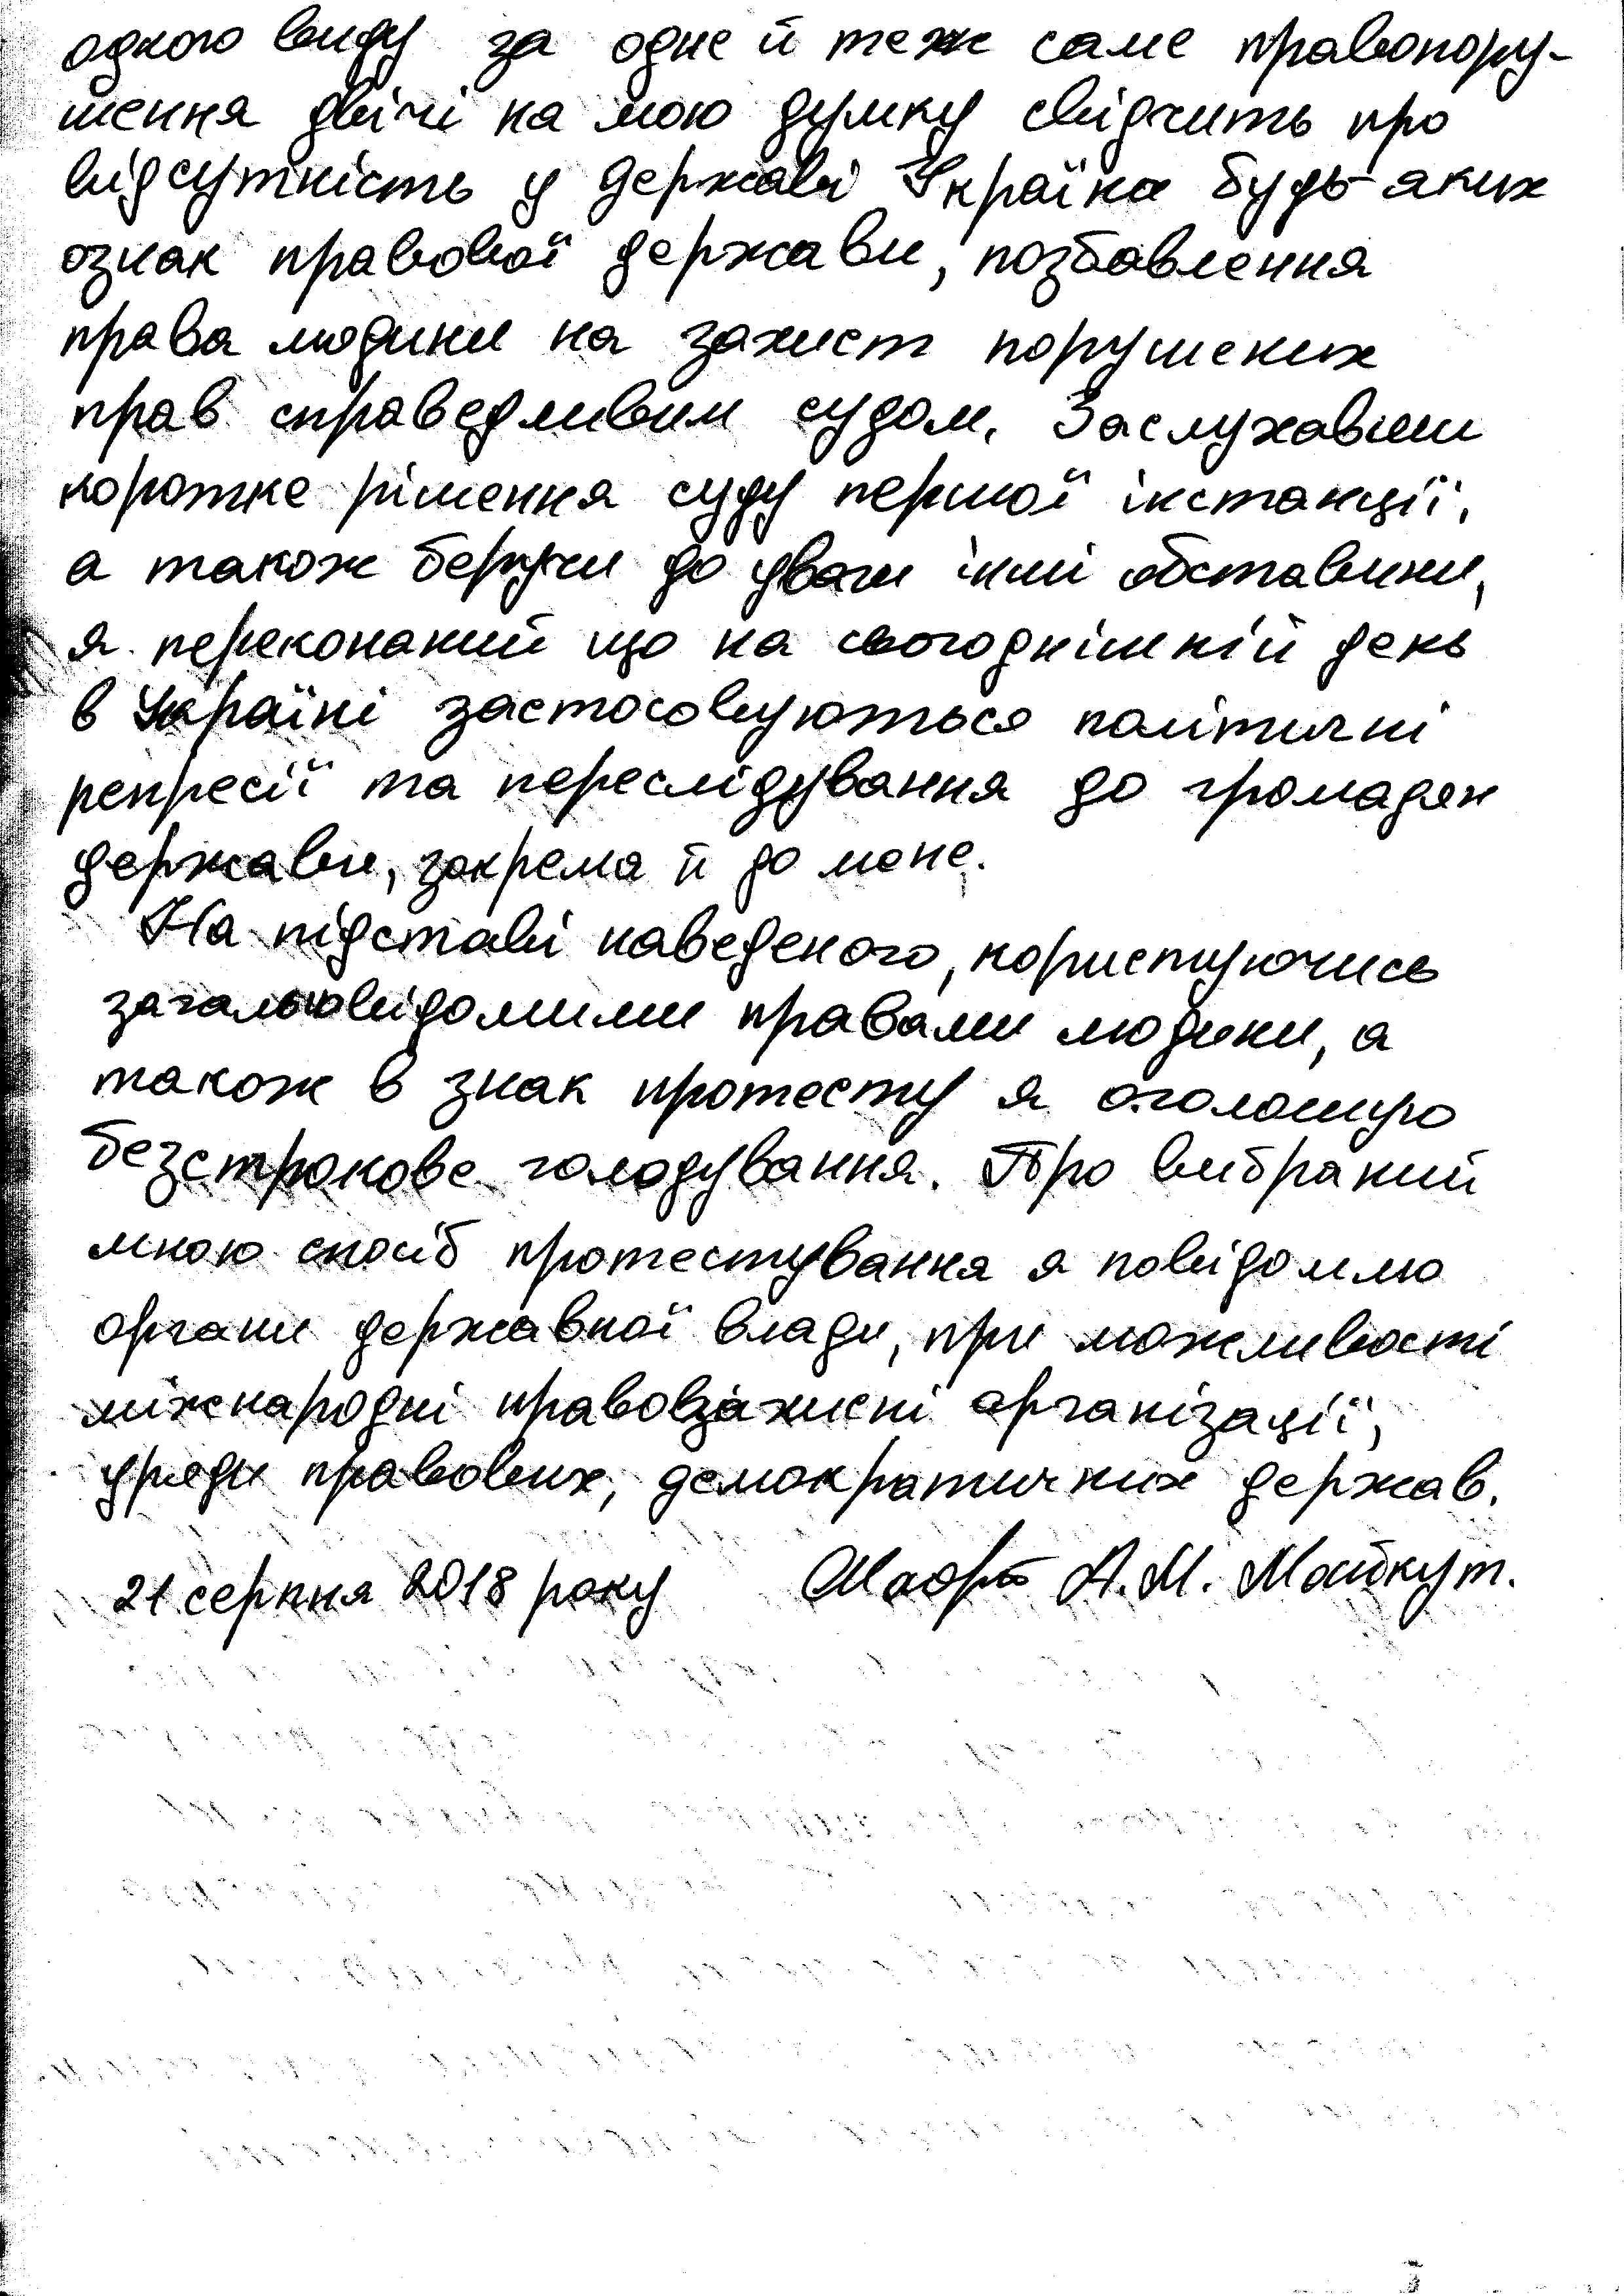 одного виду за одне й теж саме правопору-
шення двічі на мою думку свідчить про
відсутність у державі Україна будь-яких
ознак правової держави, позбавлення
права людини на захист порушених
прав справедливим судом. Заслухавши
коротке рішення суду першої інстанції,
а також беручи до уваги інші обставини,
я переконаний що на сьогоднішній день
в Україні застосовуються політичні
репресії та переслідування до громадян
держави, зокрема й до мене.
На підставі наведеного, користуючись
загальновідомими правами людини, а
також в знак протесту я оголошую
безстрокове голодування. Про вибраний
мною спосіб протестування я повідомлю
органи державної влади, при можливості
міжнародні правозахисні організації,
уряди правових, демократичних держав.
21 серпня 2018 року А.М. Майкут.